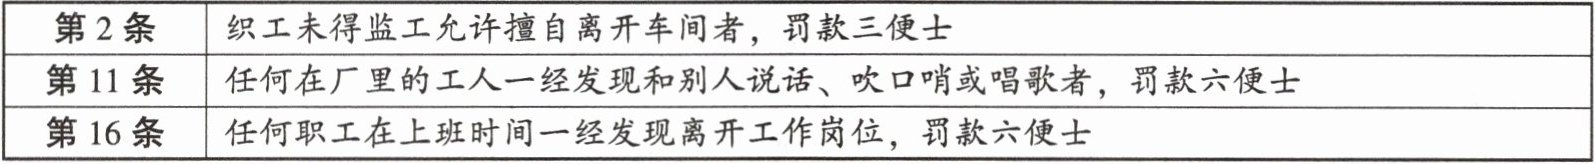 第 2 条 织工未得监工允许擅自离开车间者，罚款三便士
第 11 条 任何在厂里的工人一经发现和别人说话、吹口哨或唱歌者，罚款六便士
第 16 条 任何职工在上班时间一经发现离开工作岗位，罚款六便士